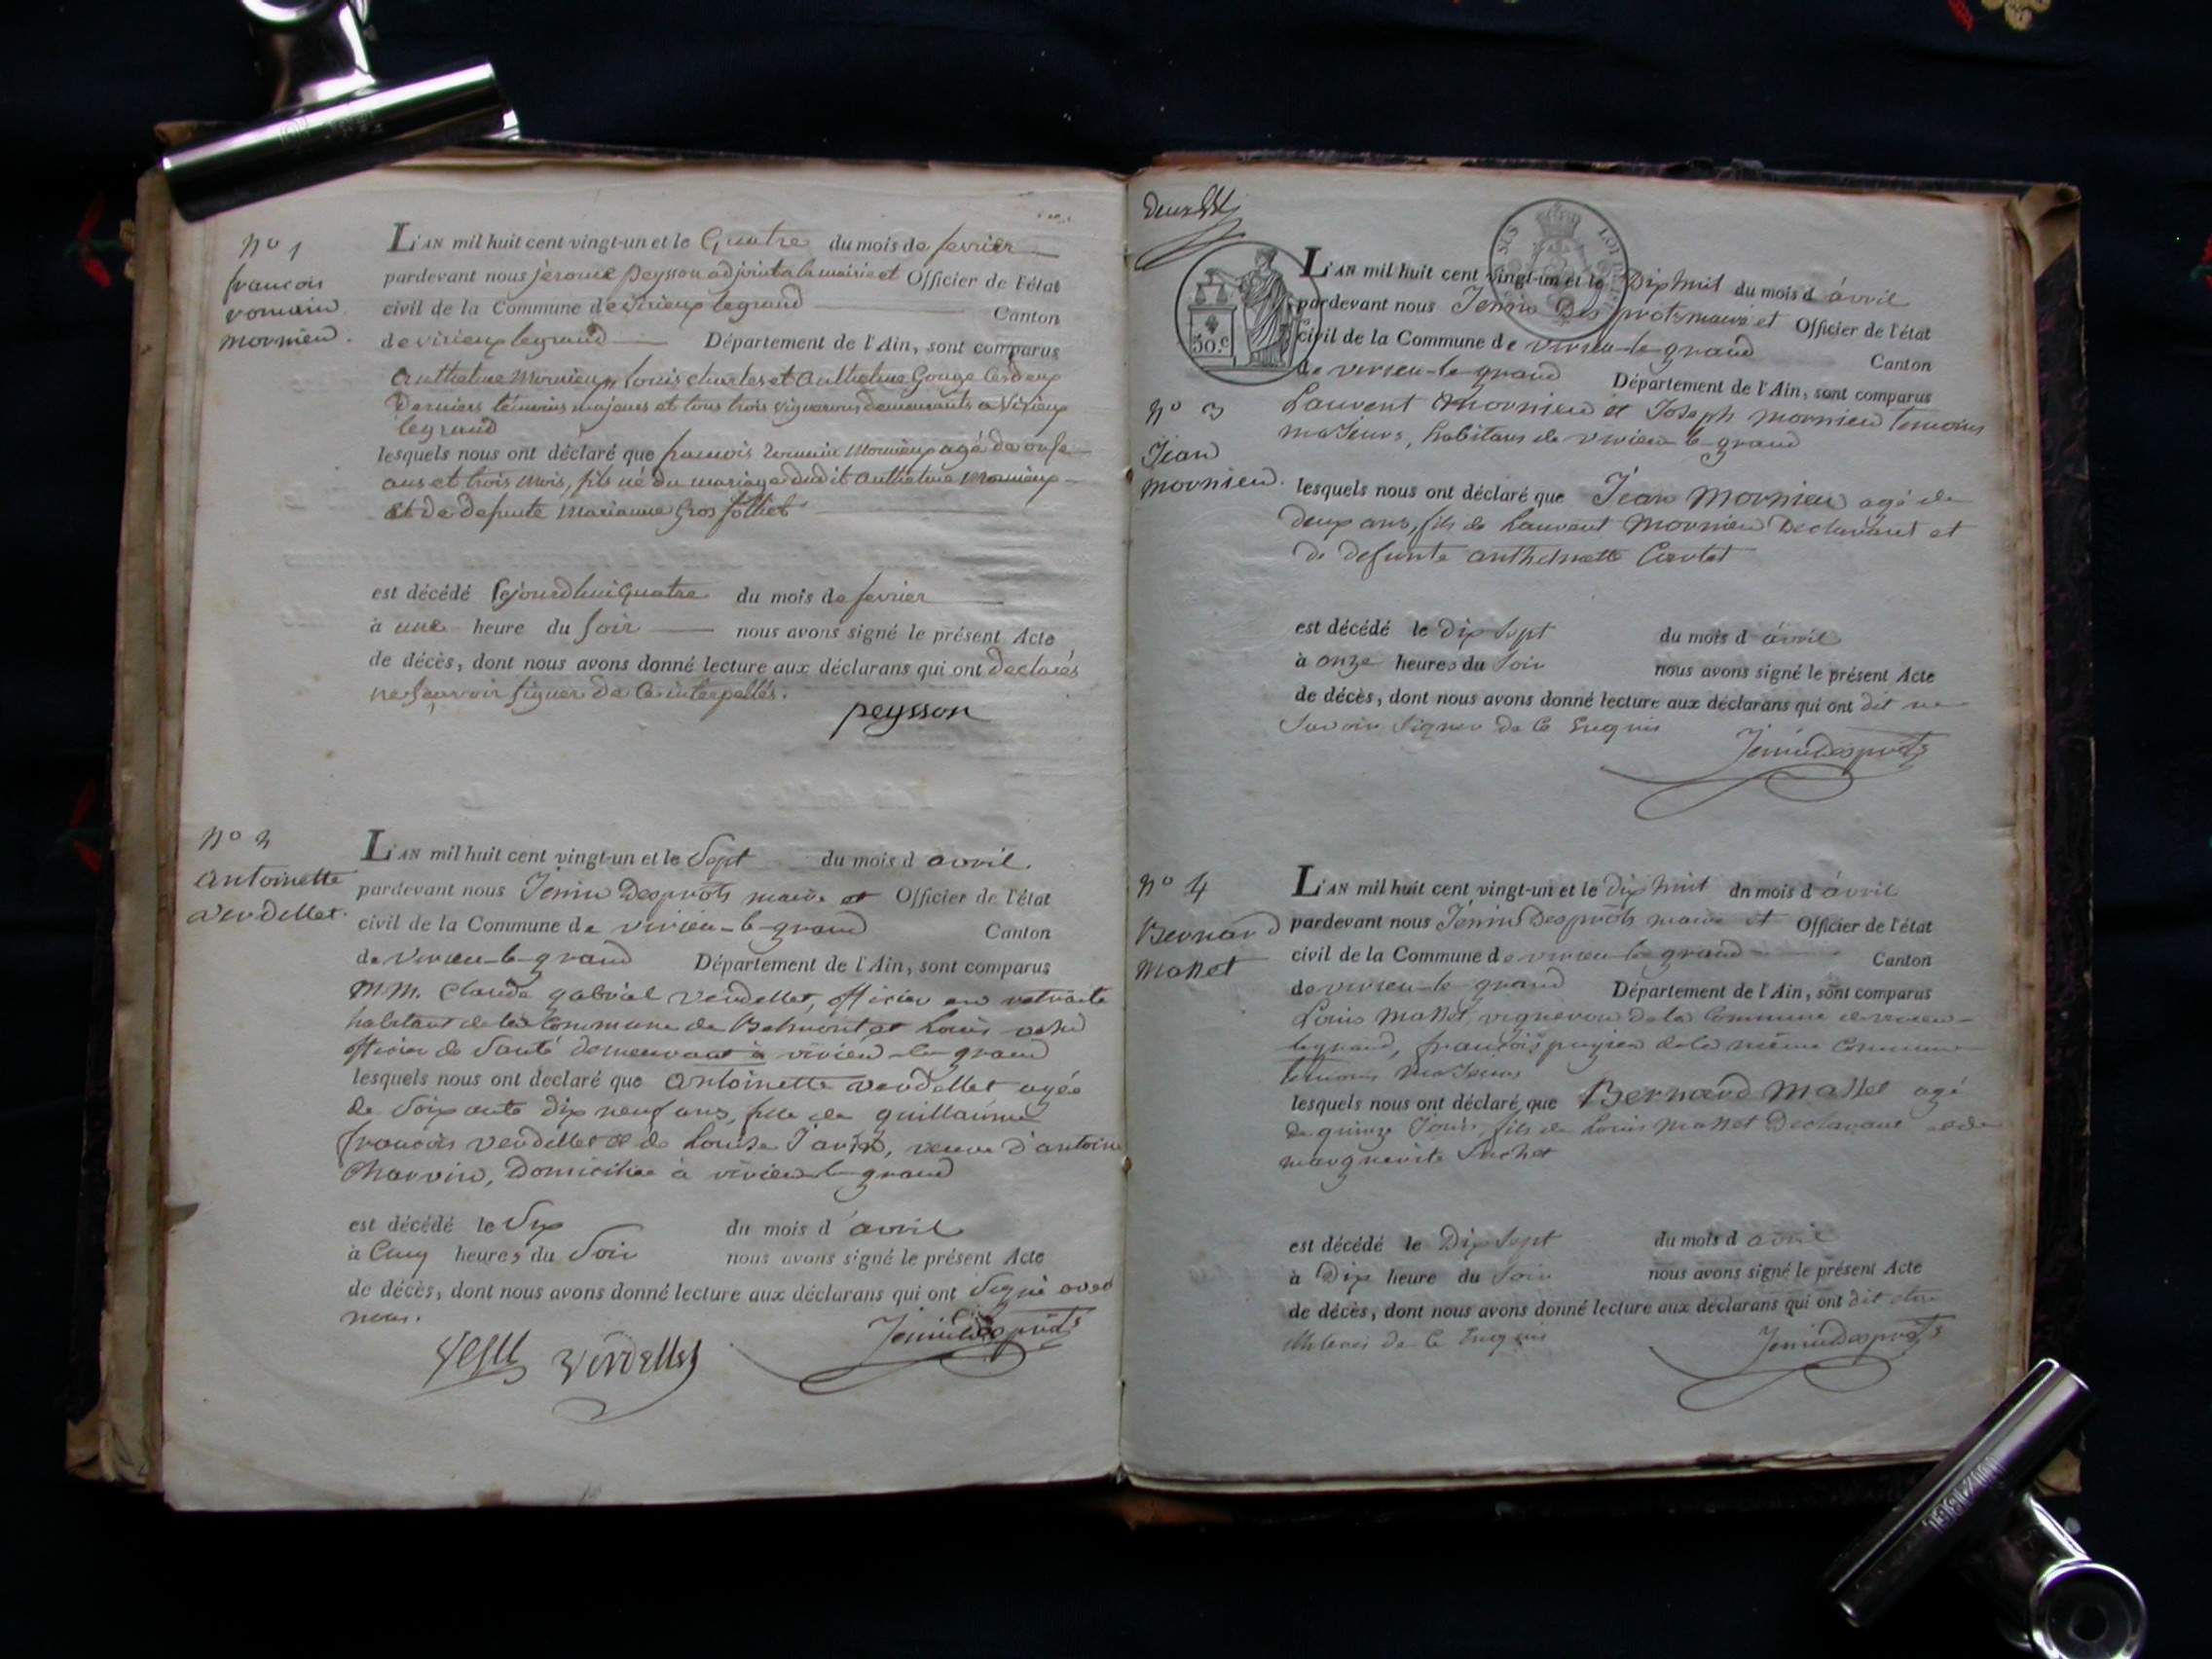 N° 1
francois
romain
mornieu.
L'AN mil huit cent vingt-un et le Quatre du mois de fevrier
pardevant nous jerome peysson adjoint a la mairie et Officier de l'état
civil de la Commune de virieux legrand Canton
de virieux legrand Département de l'Ain, sont comparus
Anthelme Mornieux, louis charles et Anthelme Gouge les deux
Derniers témoins majeurs et tous trois vignerons demeurants a Virieux
legrand
lesquels nous ont déclaré que francois romain Mornieux agé de onse
ans et trois mois, fils né du mariage dudit Anthelme Mornieux
et de defunte Marianne Gros folliet
est décédé cejourdhui Quatre du mois de fevrier
à une heure du soir nous avons signé le présent Acte
de décès, dont nous avons donné lecture aux déclarans qui ont declarés
ne sçavoir signer de ce interpellés.
peysson
N° 2
antoinette
verdellet.
L'AN mil huit cent vingt-un et le sept du mois d avril.
pardevant nous Jenin Desprots maire et Officier de l'état
civil de la Commune de virieu-le-grand Canton
de virieu-le-grand Département de l'Ain, sont comparus
MM. Claude gabriel verdellet, officier en retraite
habitant de la Commune de Belmont et Louis
officier de santé demeurant à virieu-le-grand
lesquels nous ont déclaré que antoinette verdellet agée
de soixante dix neuf ans, fille de guillaume
françois verdellet et de Louise, veuve d'antoine
Charvin, domiciliée à virieu le grand
est décédé le six du mois d avril
à Cinq heures du soir nous avons signé le présent Acte
de décès, dont nous avons donné lecture aux déclarans qui ont signé avec
nous.
Verdellet Jenin Desprots
L'AN mil huit cent vingt-un et le Dix huit du mois d avril
pardevant nous Jenin Desprots maire et Officier de l'état
50.c
civil de la Commune de virieu-le-grand Canton
de virieu-le-grand Département de l'Ain, sont comparus
N° 3
Jean
mornieu.
Laurent Mornieu et Joseph mornieu temoins
majeurs, habitans de virieu-le-grand
lesquels nous ont déclaré que Jean Mornieu agé de
deux ans, fils de Laurent Mornieu Declarant et
de defunte anthelmette
est décédé le dix sept du mois d avril
à onze heures du soir nous avons signé le présent Acte
de décès, dont nous avons donné lecture aux déclarans qui ont dit ne
savoir signer de ce Enquis
Jenin Desprots
N° 4
Bernard
Mallet
L'AN mil huit cent vingt-un et le dix huit du mois d avril
pardevant nous Jenin Desprots maire et Officier de l'état
civil de la Commune de virieu le grand Canton
de virieu-le-grand Département de l'Ain, sont comparus
Louis Mallet vigneron de la Commune de virieu-
legrand, françois de la même Commune
temoins majeurs
lesquels nous ont déclaré que Bernard Mallet agé
de quinze Jours, fils de Louis Mallet Declarant et de
marguerite
est décédé le Dix sept du mois d avril
à Dix heure du soir nous avons signé le présent Acte
de décès, dont nous avons donné lecture aux déclarans qui ont dit etre
illiteres de ce Enquis
Jenin Desprots